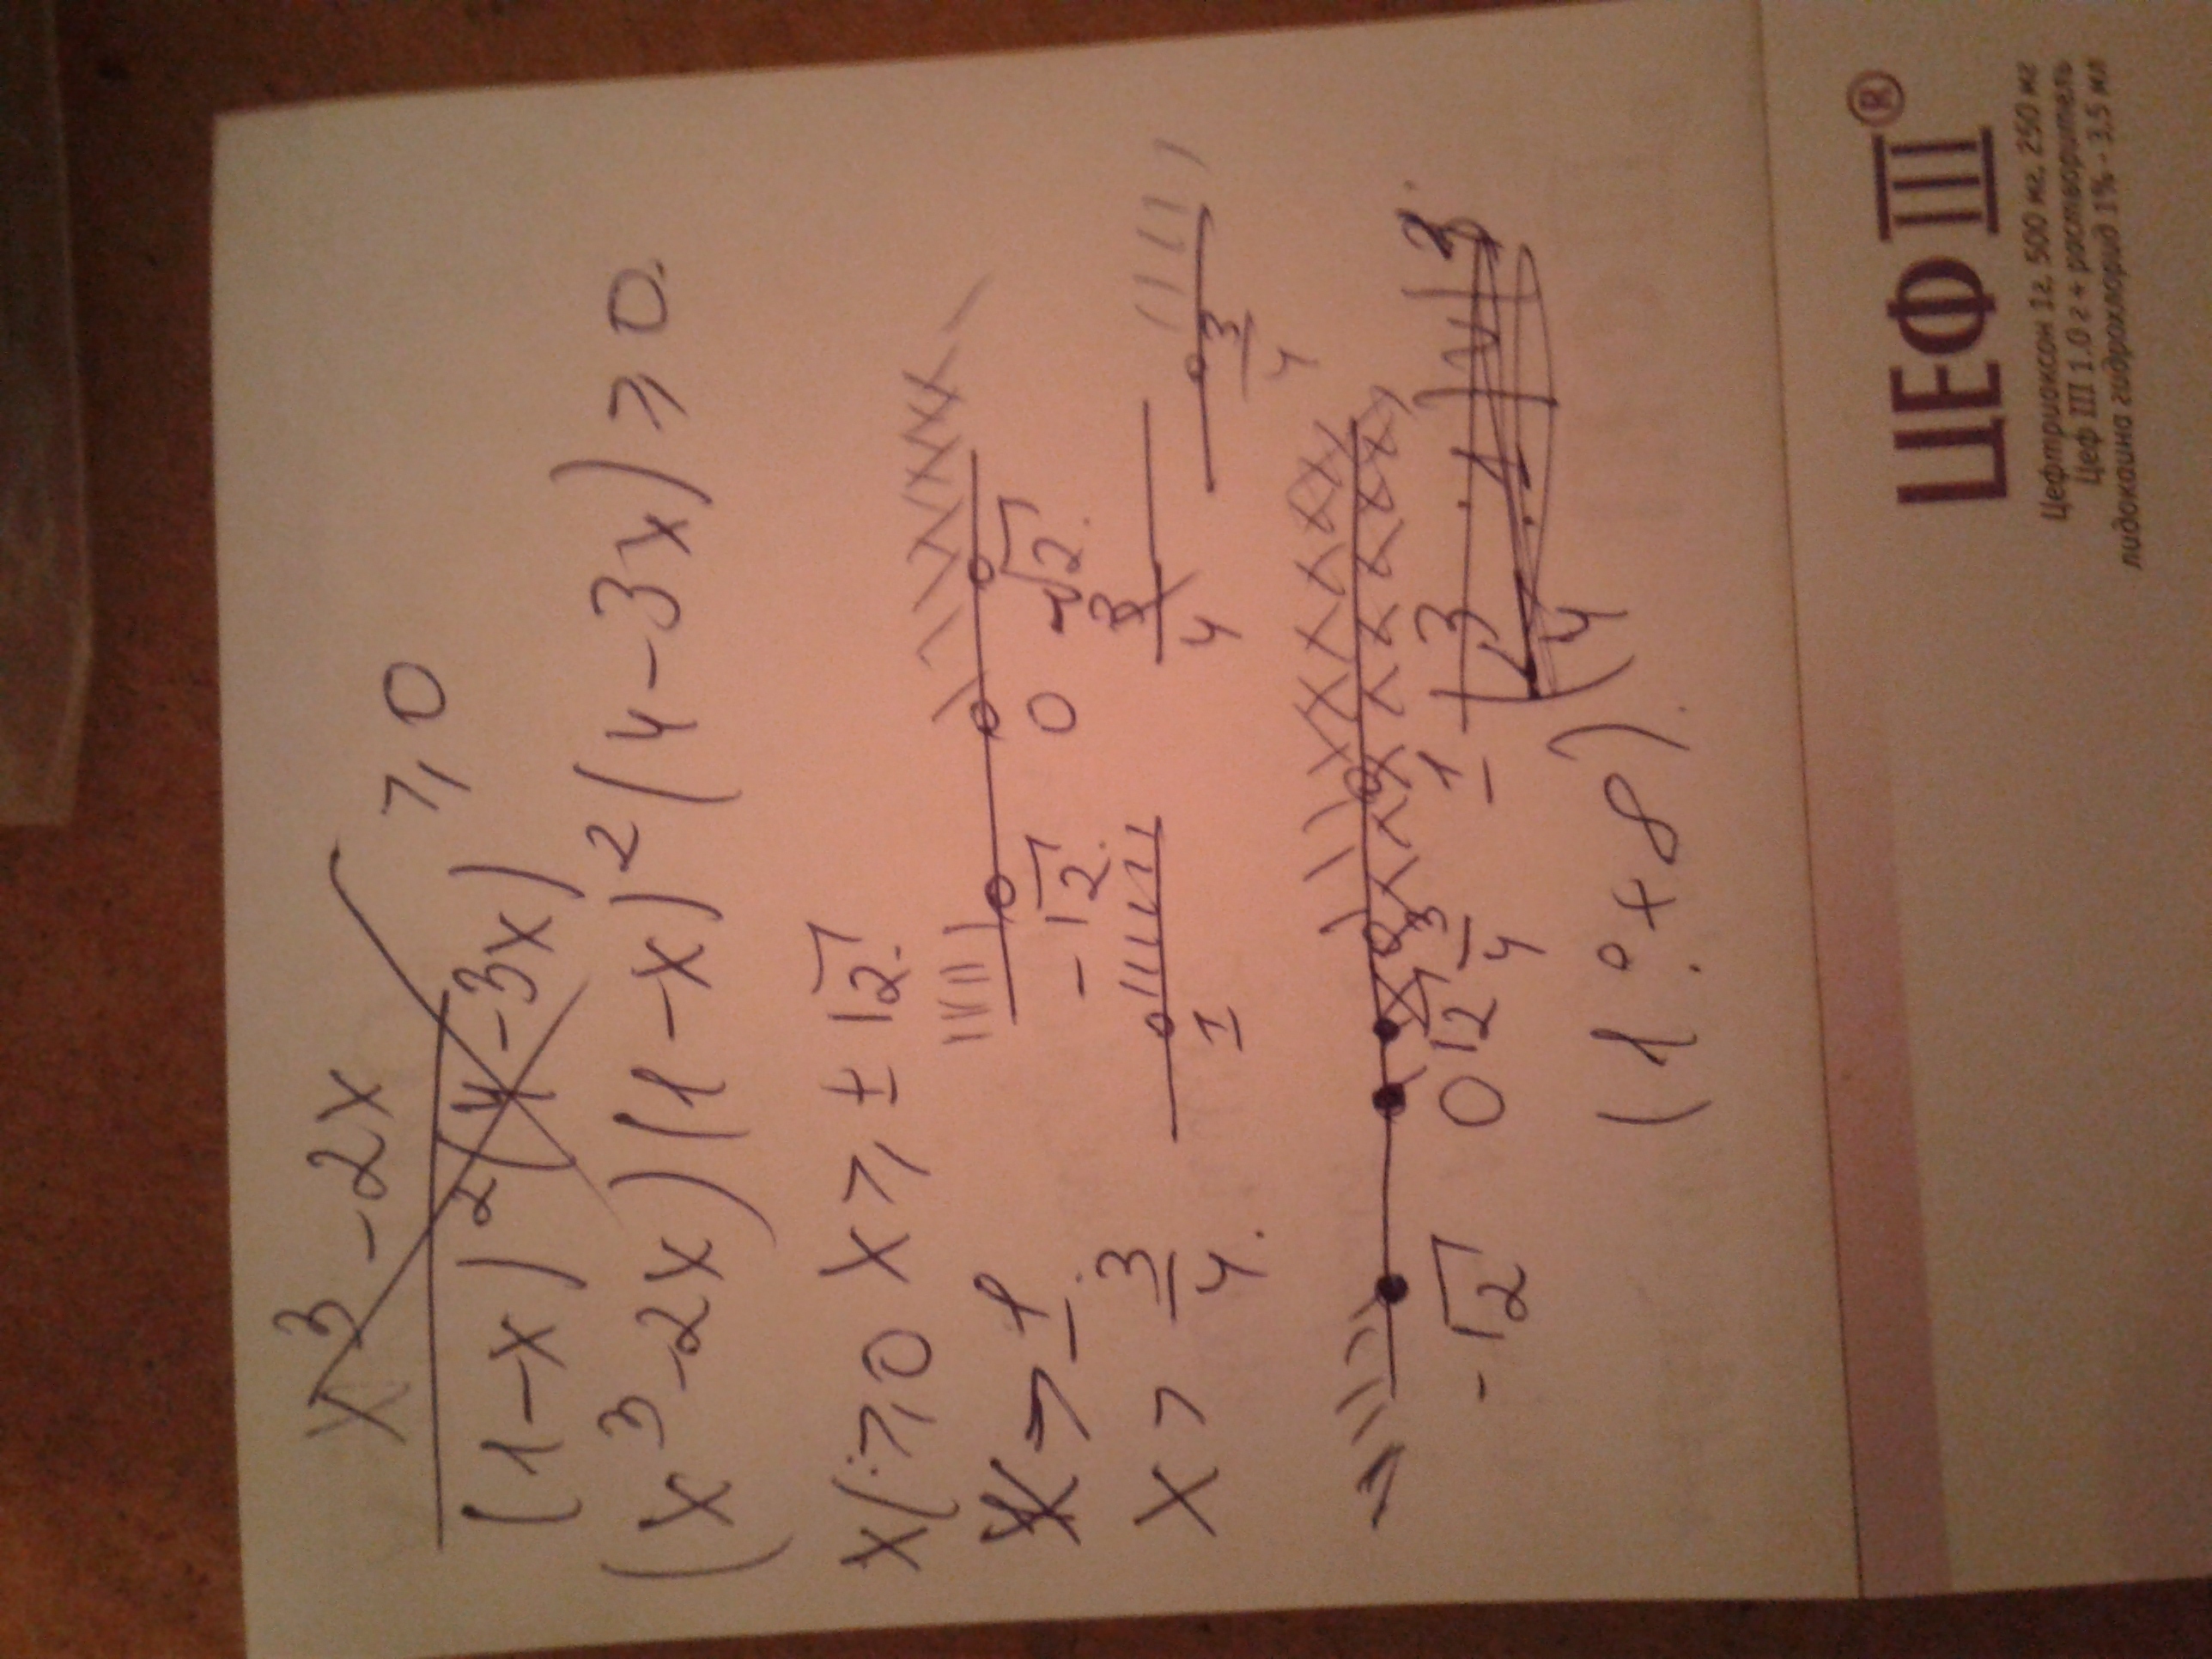 x³ - 2x
(1-x)²(4-3x) ≥ 0
(x³-2x)(1-x)²(4-3x) ≥ 0.
x ≥ 0 x ≥ ± √2.
x > 1
x > 3/4.
-√2. 0 √2.
1
3/4
3/4
-√2 0 √2 3/4 1
(1; +∞).
ЦЕФ III®
Цефтриаксон 1г, 500 мг, 250 мг
Цеф III 1.0 г + растворитель
лидокаина гидрохлорид 1% - 3.5 мл